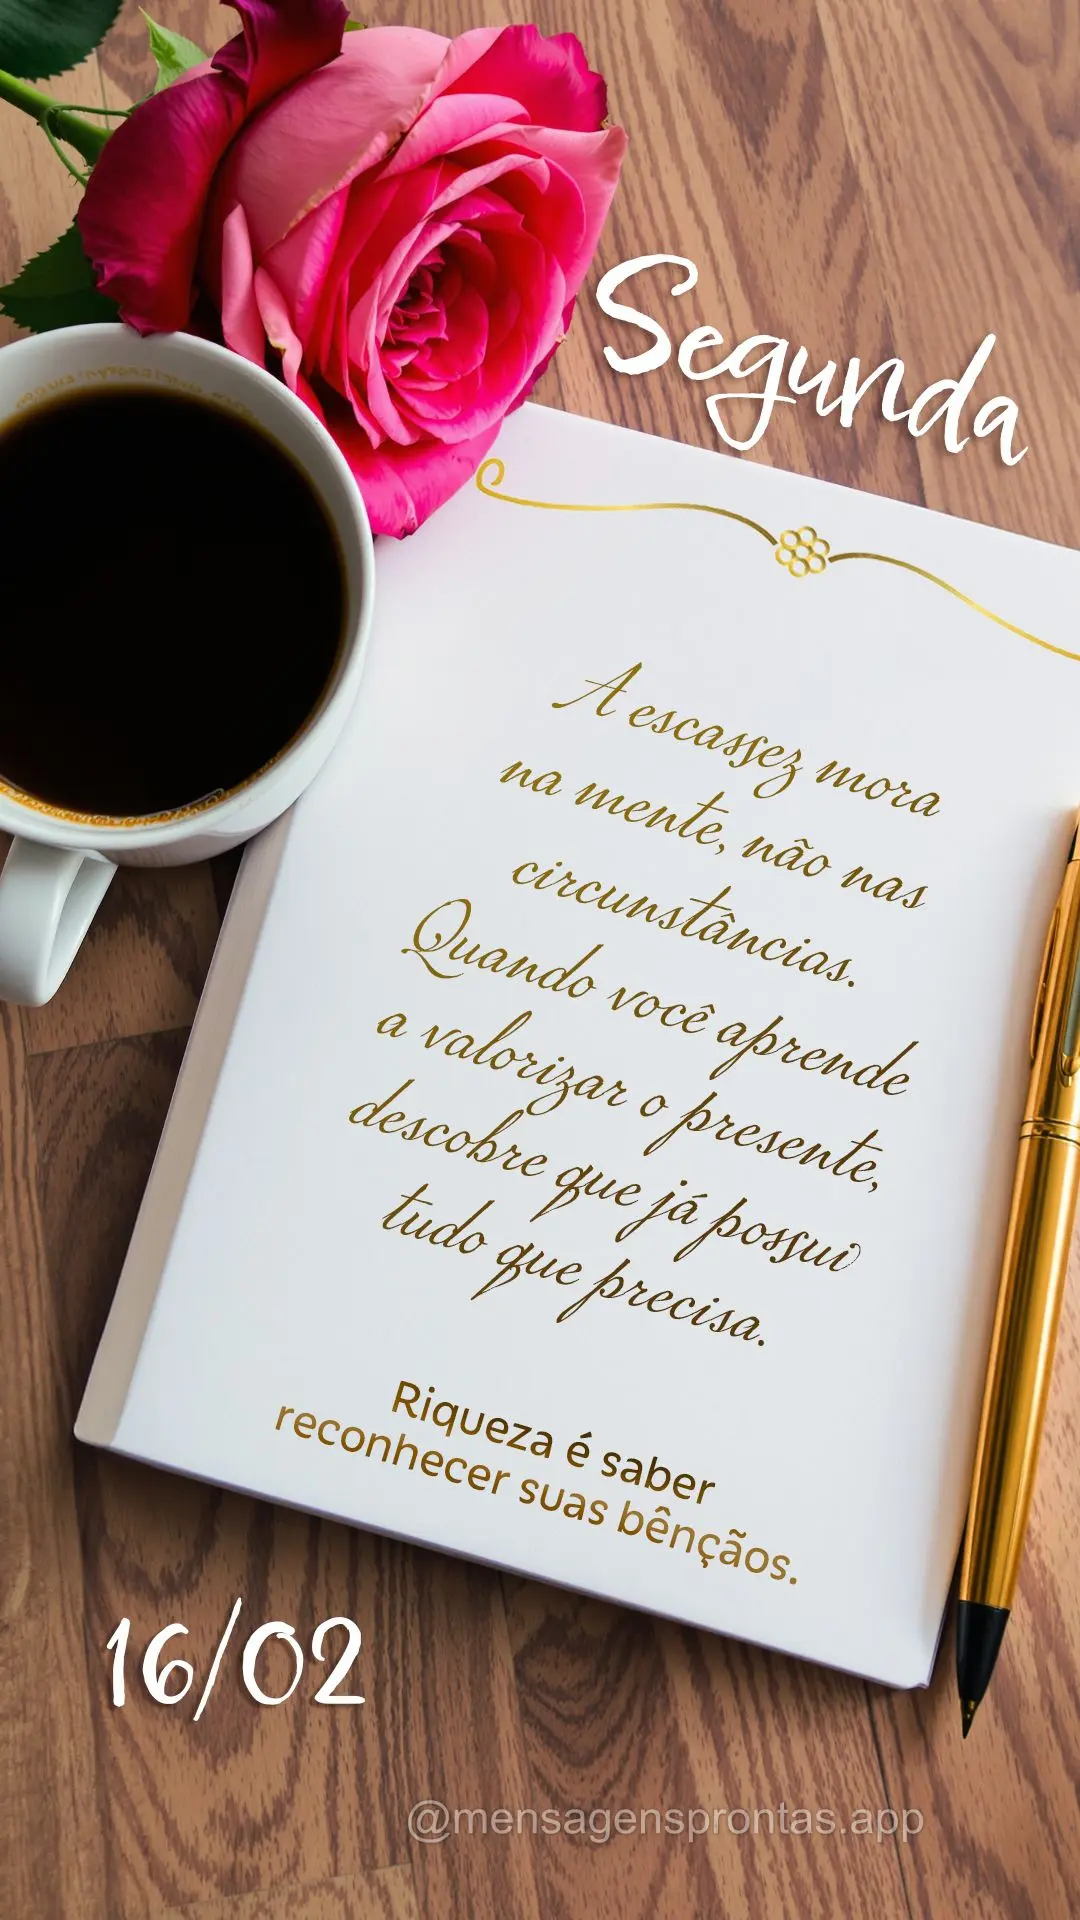 Segunda
A escassez mora
na mente, não nas
circunstâncias.
Quando você aprende
a valorizar o presente,
descobre que já possui
tudo que precisa.
Riqueza é saber
reconhecer suas bênçãos.
16/02
@mensagensprontas.app